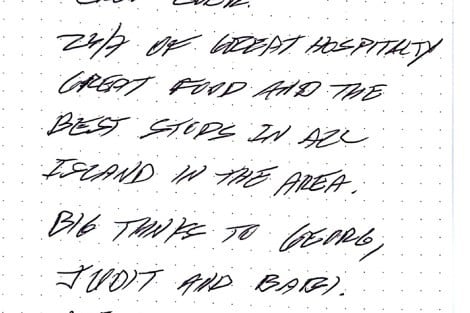 24/7 OF GREAT HOSPITALTY
GREAT FOOD AND THE
BEST STOPS IN ALL
ISLAND IN THE AREA.
BIG THNKS TO GEORG,
JUDIT AND